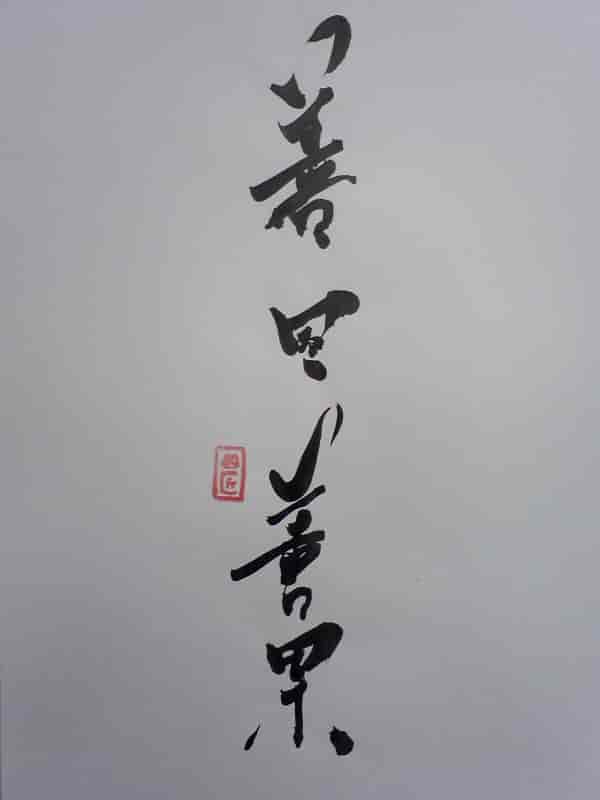 善因善果